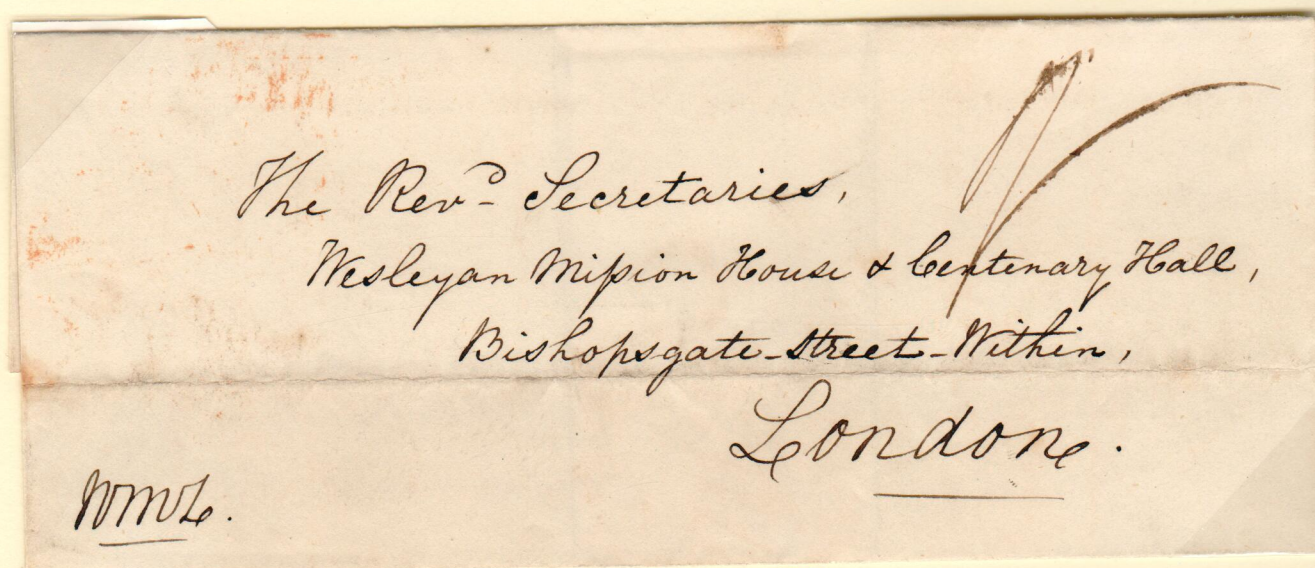 1/
The Revd Secretaries,
Wesleyan Mission House & Centenary Hall,
Bishopsgate-Street-Within,
London.